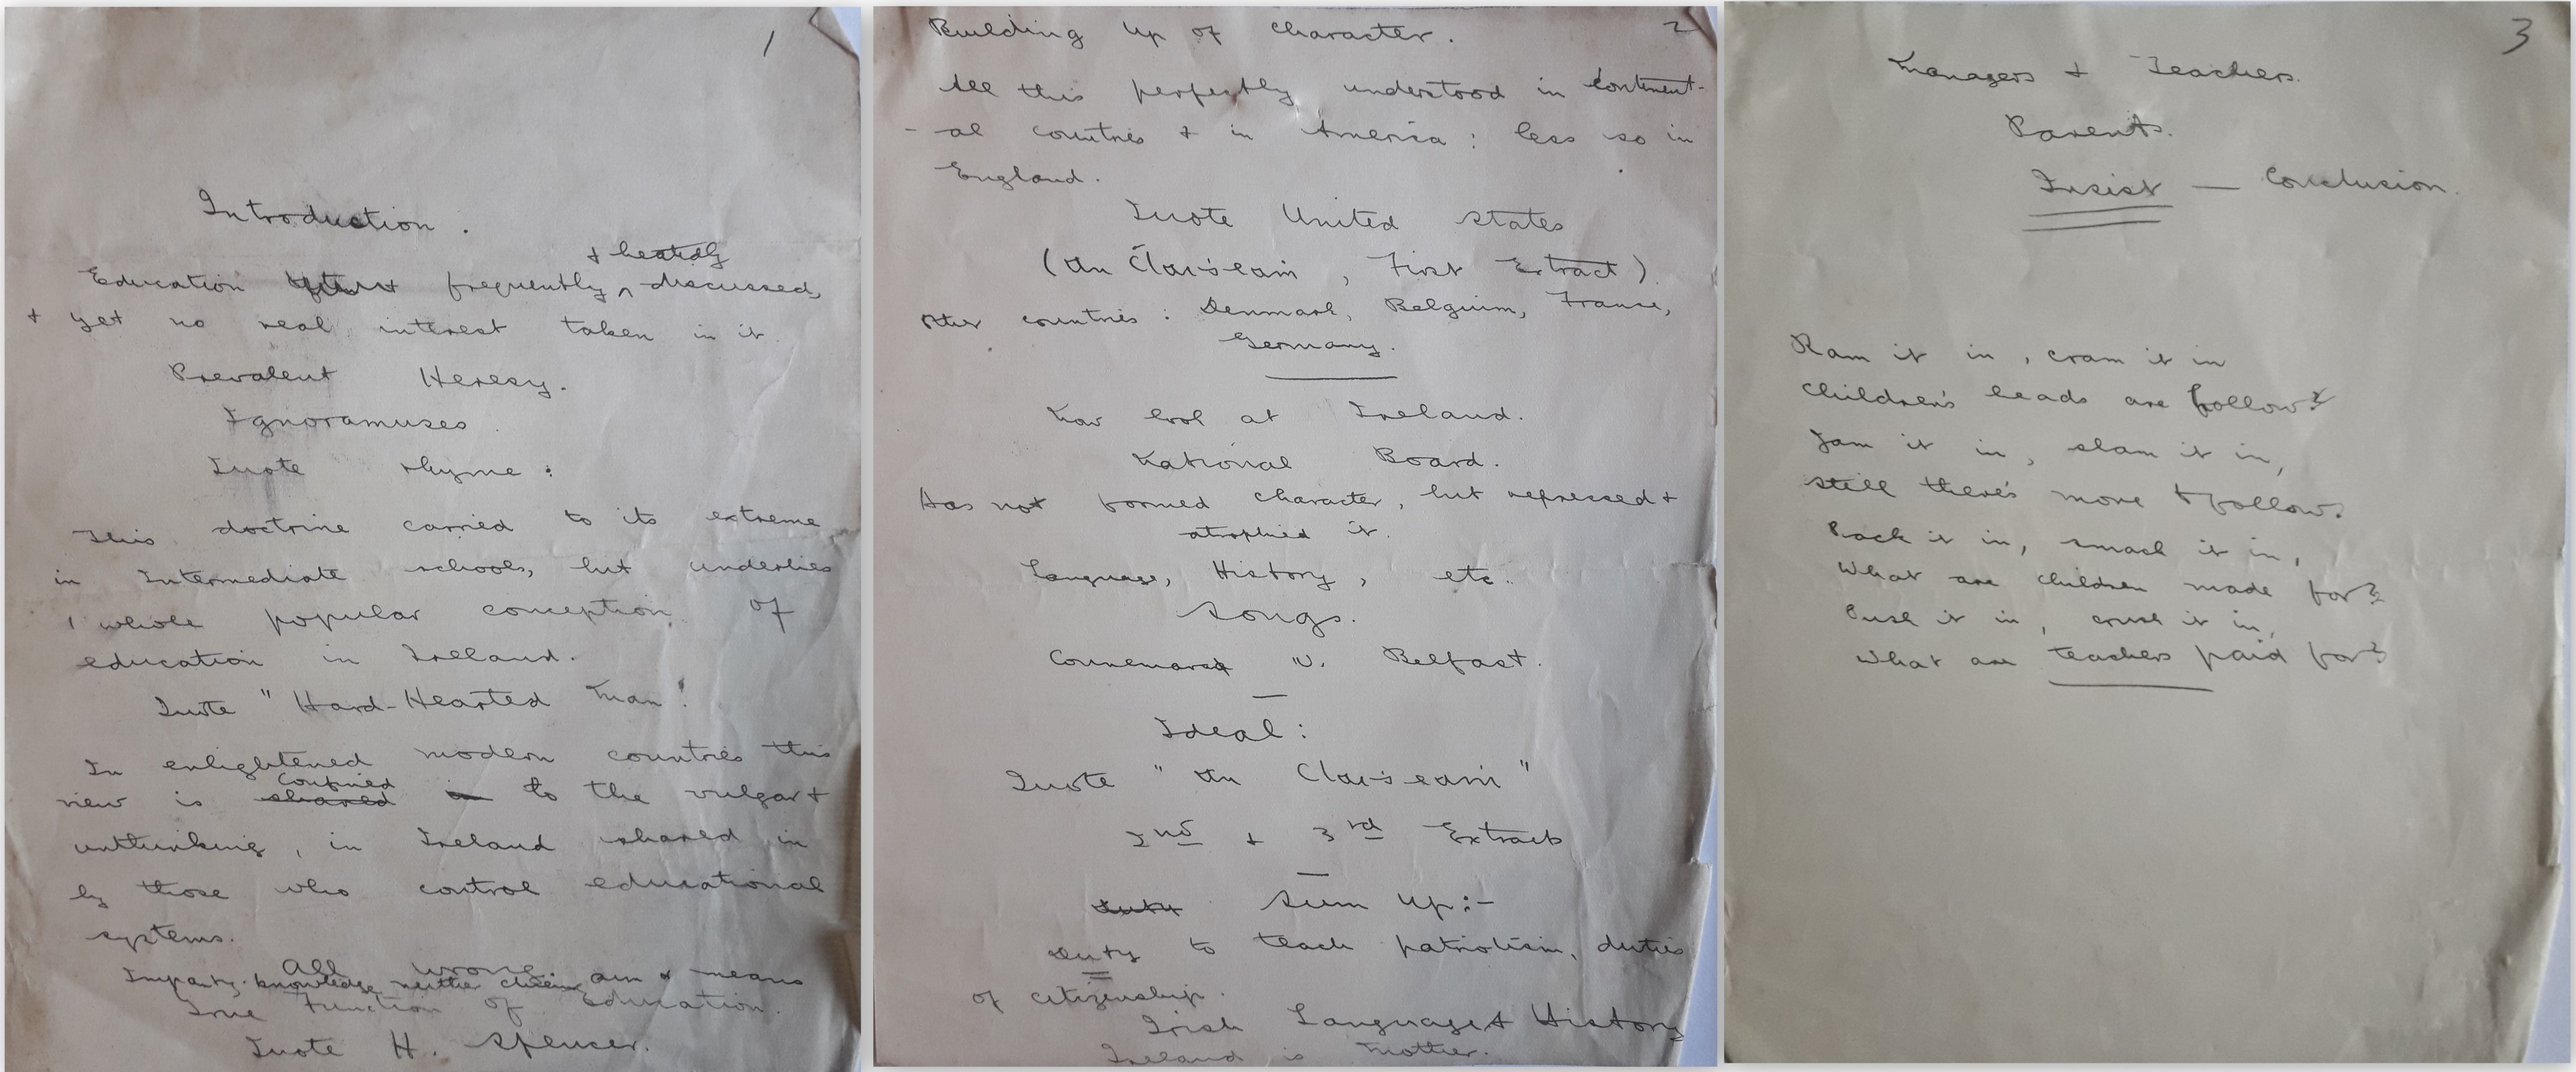 1
Introduction.
+ heatedly
Education frequently discussed,
+ yet no real interest taken in it.
Prevalent Heresy.
Ignoramuses.
Quote rhyme:
This doctrine carried to its extreme
in Intermediate schools, but underlies
whole popular conception of
education in Ireland.
Quote "Hard-Hearted Man"
In enlightened modern countries this
confined
view is shared in to the vulgar +
unthinking, in Ireland shared in
by those who control educational
systems.
All wrong.
Impartg. knowledge neither chief aim or means
True Function of Education.
Quote H. Spencer.
2
Building up of character.
All this perfectly understood in Continent-
-al countries & in America: less so in
England.
Quote United States
(An Claidheamh, First Extract).
Other countries: Denmark, Belgium, France,
Germany.
Now look at Ireland.
National Board.
Has not formed character, but repressed +
atrophied it.
Language, History, etc.
Songs.
Connemara v. Belfast.
Ideal:
Quote "An Claidheamh"
2nd + 3rd Extracts
Duty Sum up:-
Duty to teach patriotism, duties
of citizenship.
Irish Language & History
Ireland is Mother.
3
Managers + Teachers.
Parents.
Insist — Conclusion.
Ram it in, cram it in
Children's heads are hollow!
Jam it in, slam it in,
Still there's more to follow.
Pack it in, smack it in,
What are children made for?
Push it in, crush it in,
What are teachers paid for?